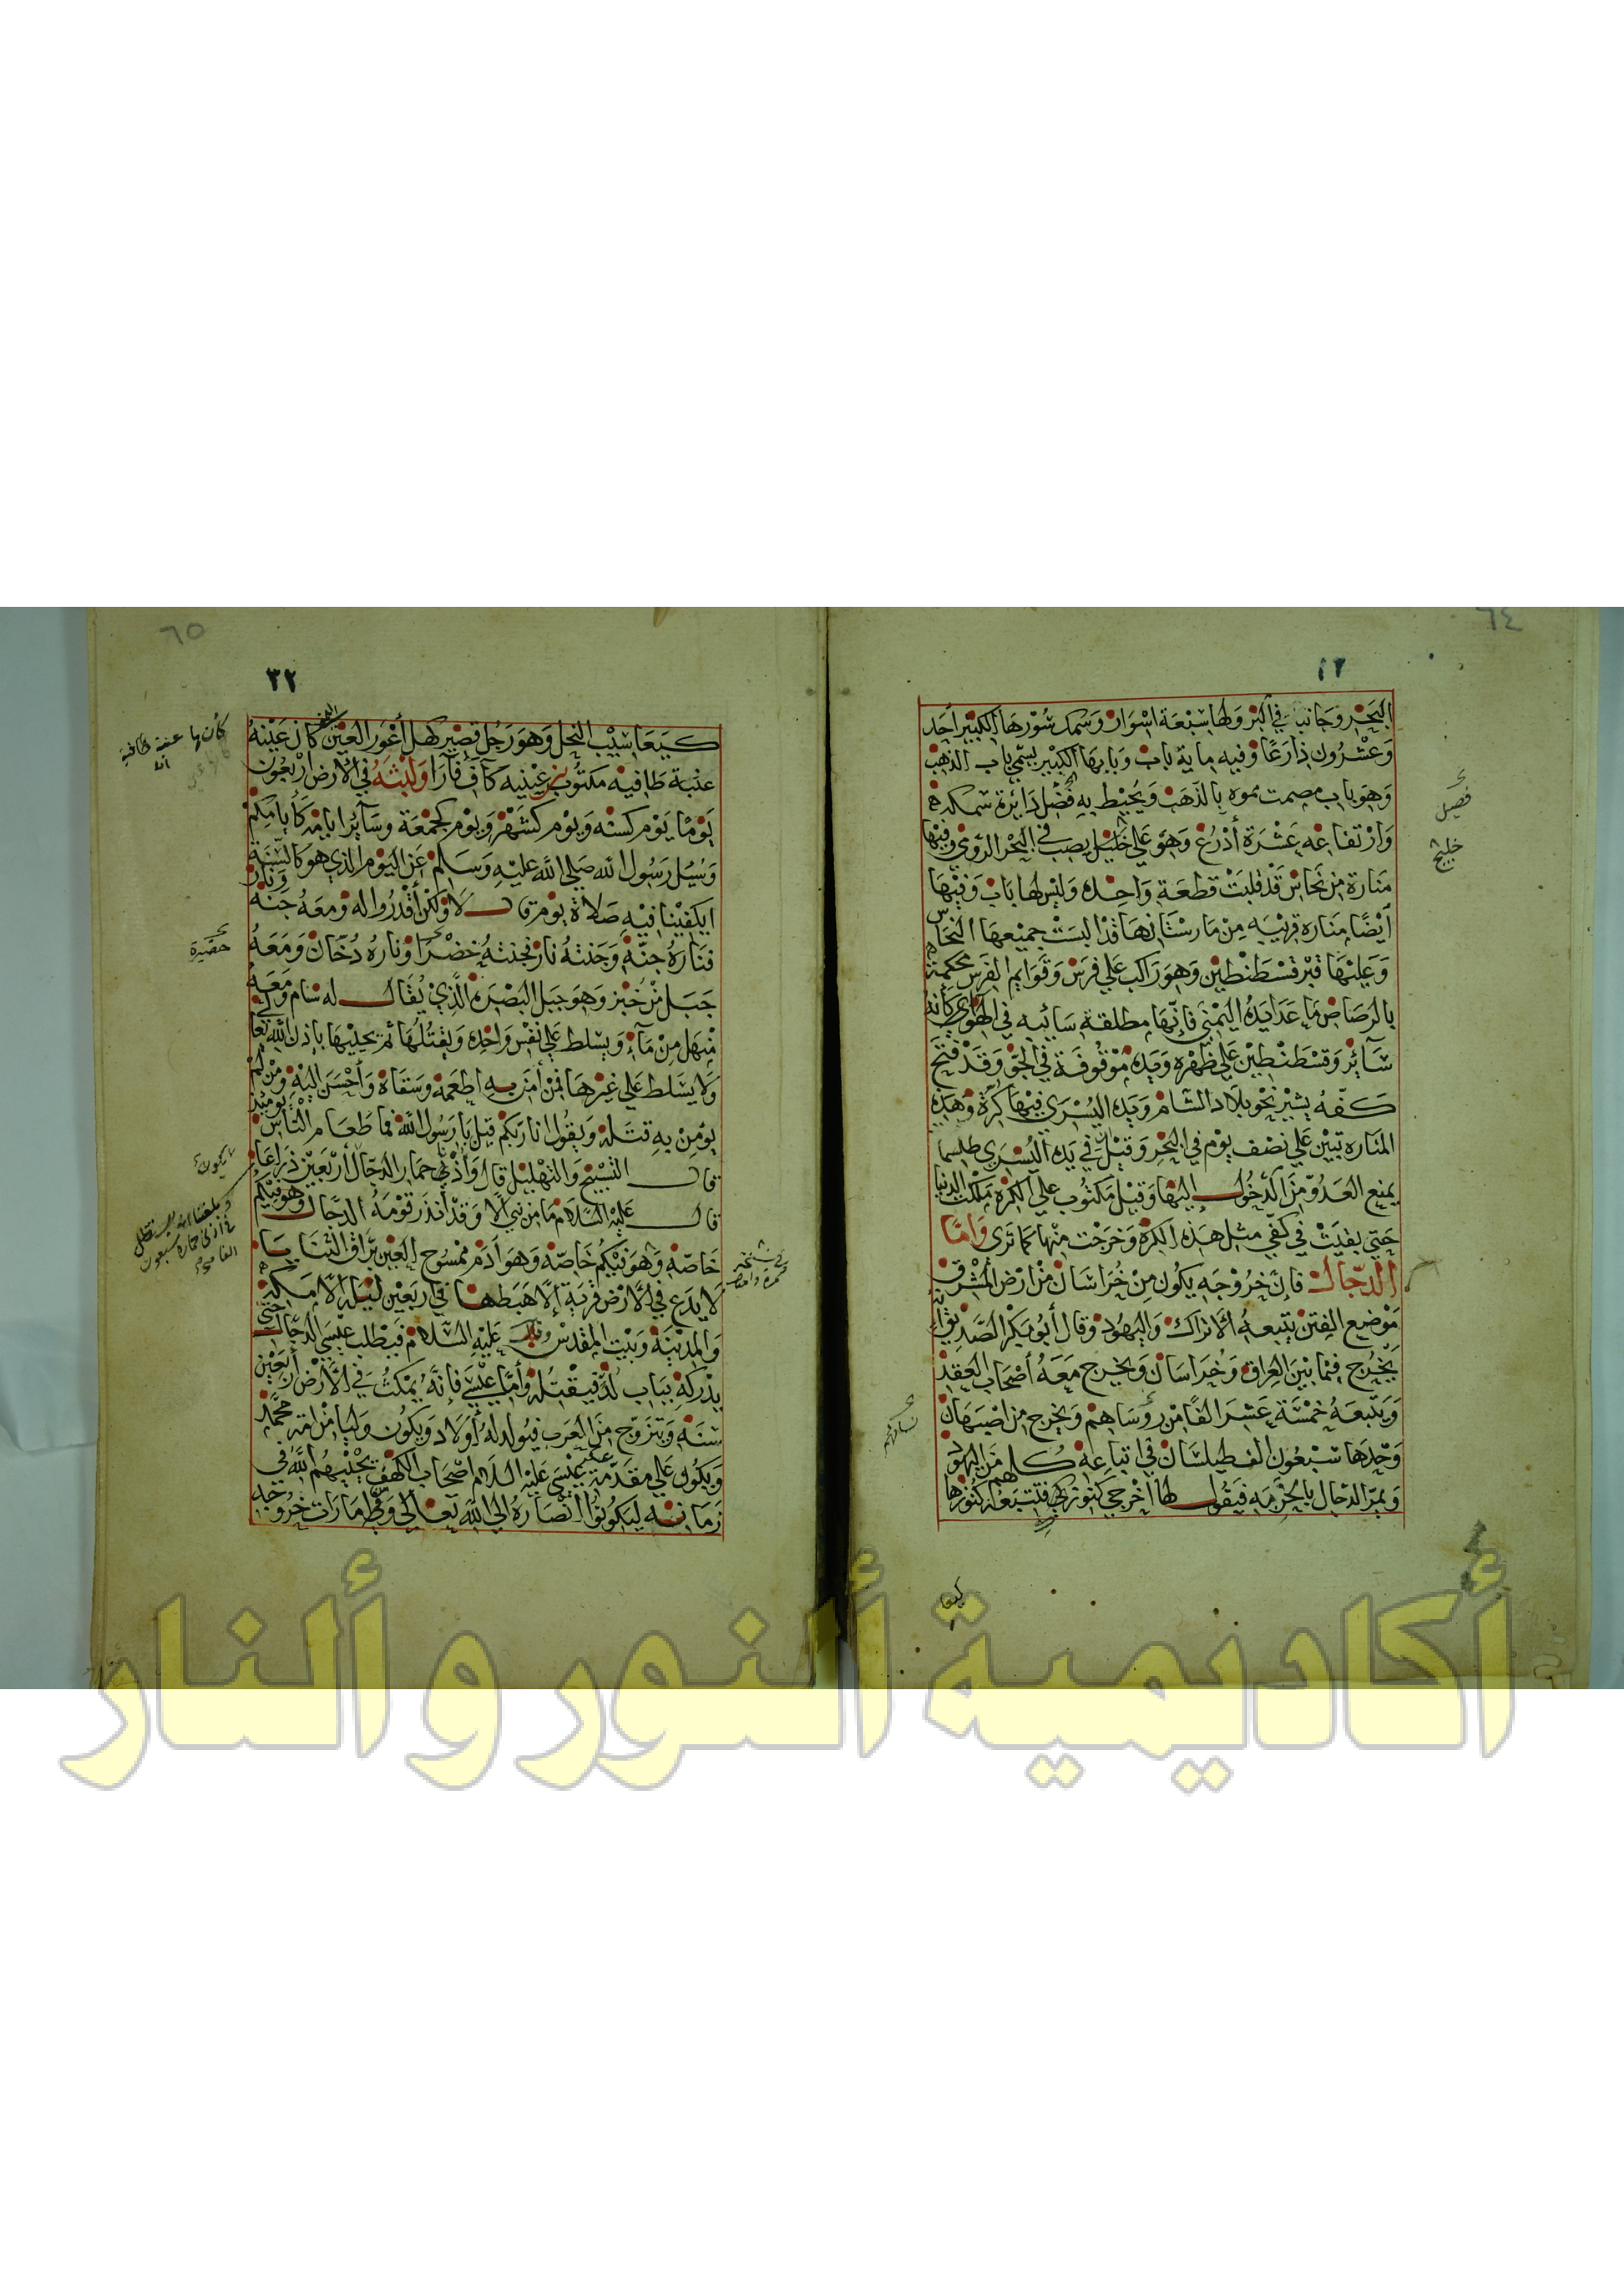 ٦٤
البحر وجانبا في البر ولها سبعة اسوار وسمك سورها الكبير أحد
وعشرون ذراعًا وفيه ماية باب وبابها الكبير يسمي باب الذهب
وهو باب مصمت مموه بالذهب ويحيط به فضل دائرة سمكه
وارتفاعه عشرة أذرع وهو علي خليل يصب في البحر الرومي فيها
منارة من نحاس قد قلبت قطعة واحده وليس لها باب وفيها
أيضًا مناره قريبه من مارستانها قد البست جميعها النحاس
وعليها قبر قسطنطين وهو راكب علي فرس وقوايم الفرس محكمة
بالرصاص ما عدا يده اليمني فانها مطلقة سائبه في الهوي كانه
سائر وقسطنطين علي ظهره ويده موقوفة في الجو وقد فتح
كفه يشير نحو بلاد الشام ويده اليسري فيها كرة وهذه
المناره تبين علي نصف يوم في البحر وقيل في يده اليسري طلسما
يمنع العدو من الدخول اليها وقيل مكتوب علي الكره ملكت الدنيا
حتي بقيت في كفي مثل هذه الكره وخرجت منها كما تري وأما
الدجال فان خروجه يكون من خراسان من ارض المشرق
موضع الفتن يتبعه الاتراك واليهود وقال أبو بكر الصديق
يخرج فيما بين العراق وخراسان ويخرج معه أصحاب العقد
ويتبعه خمسة عشر الفًا من روساهم ويخرج من اصبهان
وحدها سبعون الف طيلسان في اتباعه كلهم من اليهود
ويمر الدجال بالخزمه فيقول لها أخرجي كنوزكي فتتبعه كنوزها
فصيل
خليج
نساؤهم
٦٥
٣٢
كيعاسيب النحل وهو رجل قصير كهل أعور العين كان عينه
عنبة طافيه مكتوب بين عينيه كاف فا را ولبثه في الأرض اربعون
يومًا يوم كسنه ويوم كشهر ويوم كجمعة وسائر ايامه كأيامكم
وسيل رسول الله صلي الله عليه وسلم عن اليوم الذي هو كالسنة
ايكفينا فيه صلاة يوم قال لا ولكن أقدروا له ومعه جنة ونار
فناره جنة وجنته نار فجنته خضرا وناره دخان ومعه
جبل من خبز وهو جبل البصره الذي يقال له سنام ومعه
منهل من ماء ويسلط علي نفس واحده ويقتلها ثم يحييها باذن الله تعالي
ولا يسلط علي غيرها فمن أمن به اطعمه وسقاه وأحسن اليه ومن لم
يومن به قتله ويقول انا ربكم قيل يا رسول الله فما طعام الناس يوميذ
قال التسبيح والتهليل قال وأذني حمار الدجال أربعين ذراعًا
قال عليه السلام ما من نبي الا وقد أنذر قومه الدجال وهو فيكم
خاصّة وهو فيكم خاصّة وهو أدم ممسوح العين براق الثنايا
لا يدع في الارض قرية إلا هبطها في اربعين ليله الا مكه
والمدينة وبيت المقدس وقال عليه السلام فيطلب عيسي الدجال حتي
يدركه بباب لد فيقتله وأما عيسي فانه يمكث في الأرض أربعين
سنه ويتزوج من العرب فيولد له أولاد ويكون وليا من امة محمد
ويكون علي مقدمة عيسي عليه السلام اصحاب الكهف يحييهم الله في
زمانه ليكونوا انصاره الي الله تعالي وقيل امارات خروجه